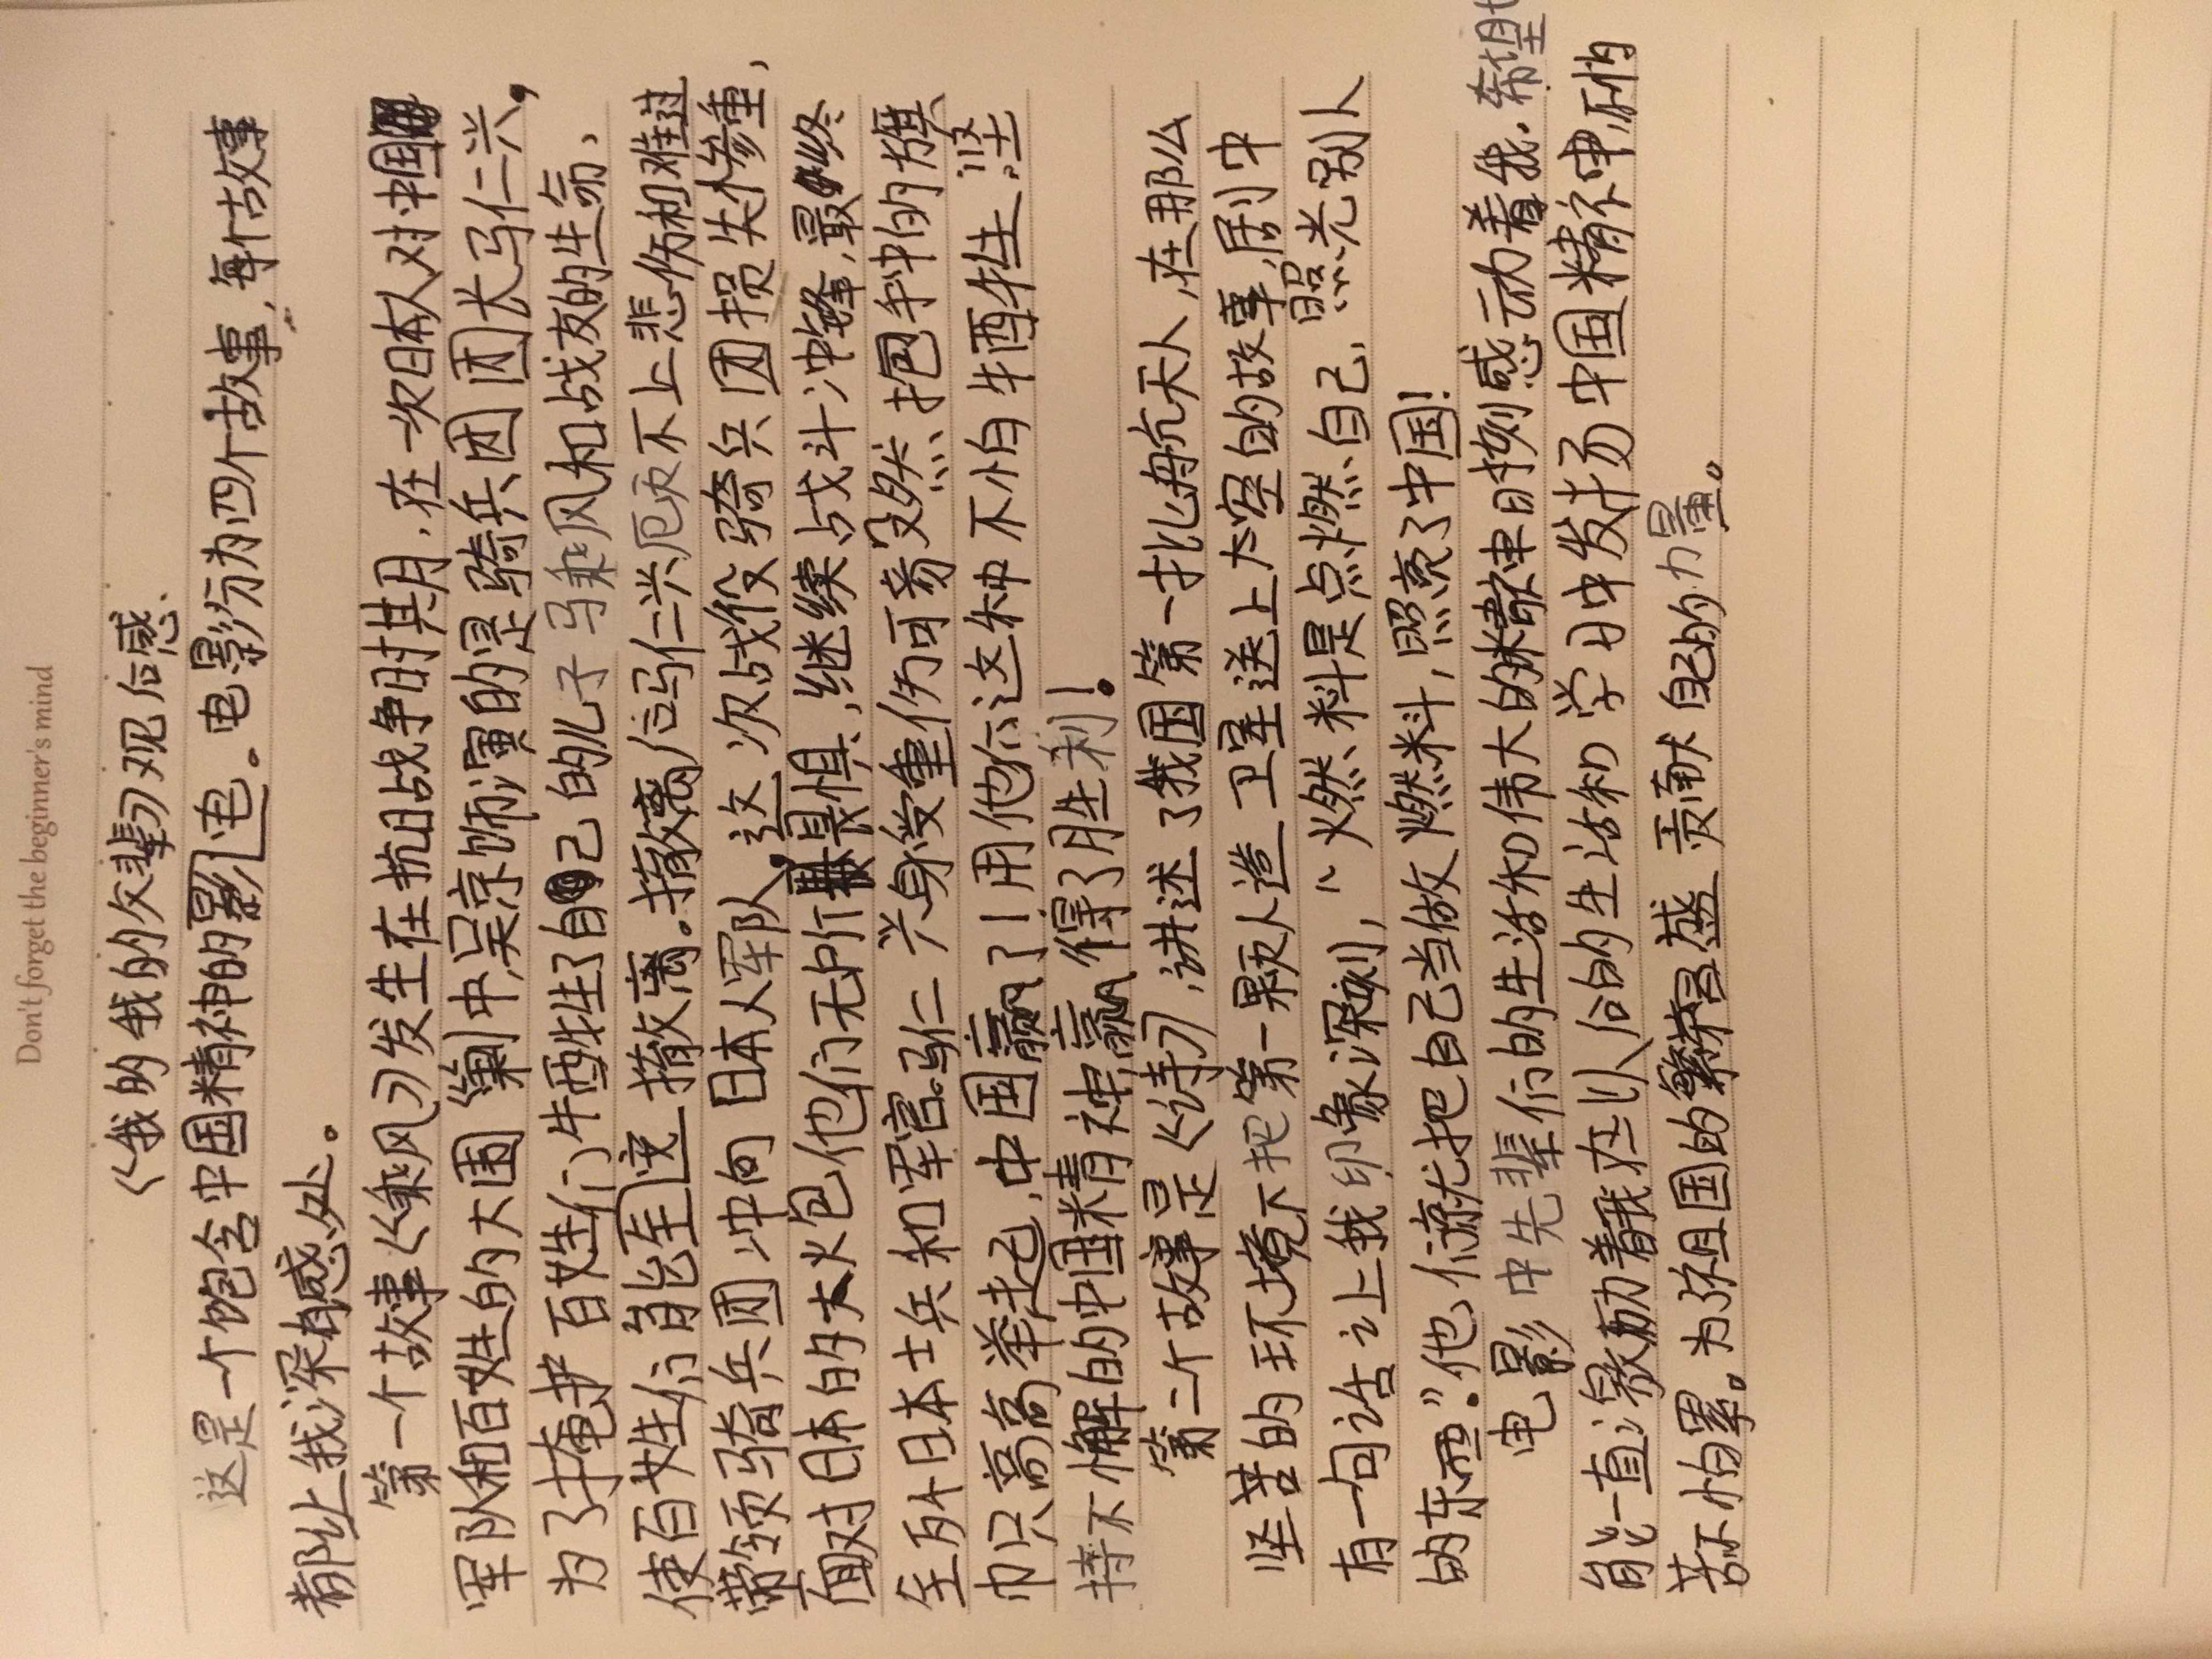 Don't forget the beginner's mind
《我的我的父辈》观后感
这是一个饱含中国精神的影电。电影分为四个故事，每个故事
都让我深有感处。
第一个故事《乘风》发生在抗日战争时其月，在一次日本人对中国
军队和百姓的大围剿中，吴京饰演的是骑兵团团长马仁兴，
为了掩护百姓们牺牲了自己的儿子马乘风和战友的生命，
使百姓们能到这撤离。撤离后马仁兴顾不上悲伤和难过
带领骑兵团冲向日本人军队，这次战役骑兵团损失惨重，
面对日本的大火包他们无所畏惧，继续战斗冲锋，最终
至歼日本士兵和军官。马仁兴身受重伤可易殳然抱手中的旗
巾只高高举起，中国赢了！用他们这种不怕牺牲，坚
持不懈的中国精神赢得了胜利！
第二个故事是《诗》，讲述了我国第一批航天人，在那么
坚苦的环境下把第一颗人造卫星送上太空的故事，居刂中
有一句话让我印象深刻，“燃料是点燃自己，照光别人
的东西”。他们就把自己当做燃料，照亮了中国！
电影中先辈们的生活和伟大的精神时刻感动着我，希望
能一直激励着我在以后的生活和学习中发扬中国精神，不怕
苦不怕累。为祖国的繁荣昌盛贡献自己的力量。